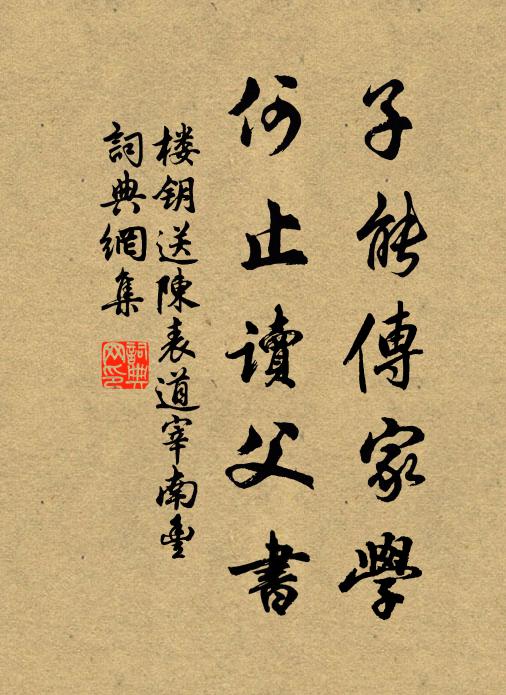 子能傳家學
何止讀父書
楼钥送陳表道宰南豐
詞典網集
詞典網印